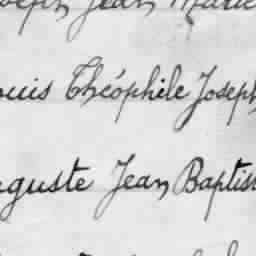 Joseph Jean Marie
Louis Théophile Joseph
Auguste Jean Baptiste